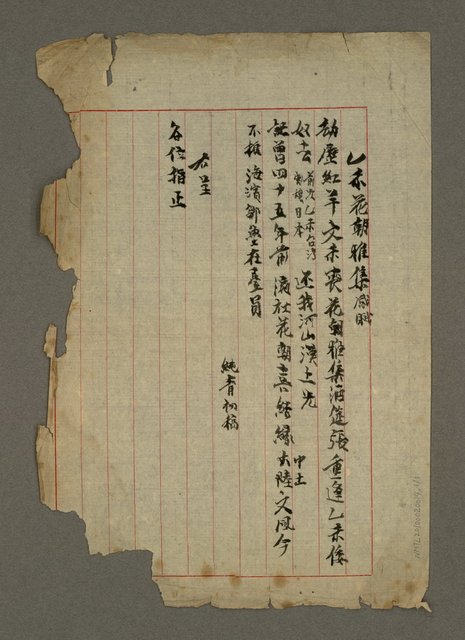 乙未花朝雅集感賦
劫歷紅羊文未喪花朝雅集酒筵張重逢乙未倭
奴去前次乙未台灣割讓日本還我河山漢土光
記曾四十五年前瀛社花朝喜結緣大陸中土文風今
不振海濱鄒魯在臺員
純青初稿
右呈
各位指正
NMTL20100020019_1/1